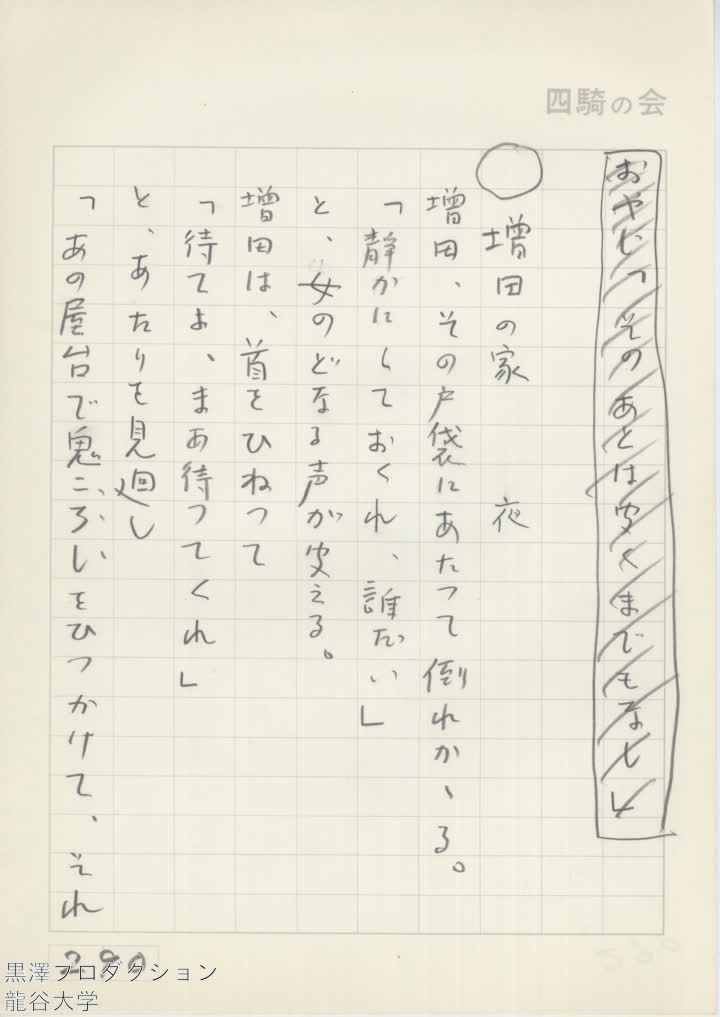 四騎の会
おやじ「そのあとは安くまでもなし」
○ 増田の家　　夜
増田、その戸袋にあたつて倒れかゝる。
「静かにしておくれ、誰だい」
と、女のどなる声が変える。
増田は、首をひねつて
「待てよ、まあ待つてくれ」
と、あたりを見廻し
「あの屋台で鬼ごろしをひつかけて、それ
290
黒澤プロダクション
龍谷大学